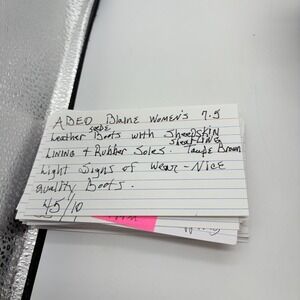 ADEO Blaine Women's 7.5
suede
Leather Boots with Sheepskin
shearling
Lining + Rubber Soles. Taupe Brown
Light Signs of Wear - Nice
quality Boots.
45/10